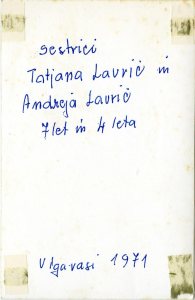 sestrici
Tatjana Lavrič in
Andreja Lavrič
7 let in 4 leta
Vlgavasi 1971